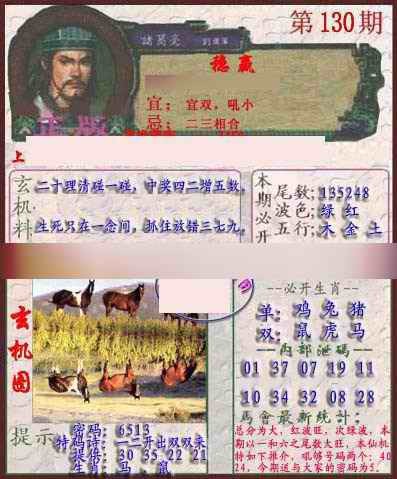 第130期
諸葛亮
稳赢
宜: 宜双,吼小
忌: 二三相合
正版
上
玄机料
二十理清碰一碰,中奖四二增五数。
生死只在一念间,抓住放错三七九。
本期必开
尾数:135248
波色:绿 红
五行:木 金 土
玄机图
--必开生肖--
单:鸡 兔 猪
双:鼠 虎 马
--内部泄码--
01 37 07 19 11
10 34 32 08 28
馬會最新統計:
总分为大,红波旺,次绿波,本
期以一和六之尾数大旺,本仙机
特如下推介,吼够号码两个:40
24,今期送与大家的密码为5.
提示
密码: 6513
特码诗:一二开出双双来
提供: 30 35 22 21
生肖: 马、鼠